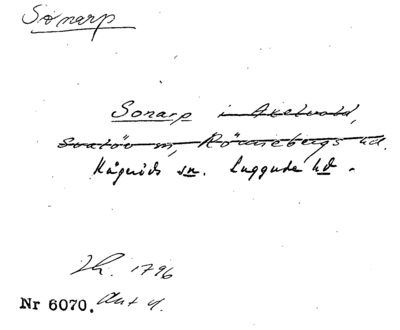 Sonarp
Sonarp i Axelvold,
Svalöv sn, Rönnebergs hd.
Kågeröds sn. Luggude hd.
1796
Nr 6070. Ant